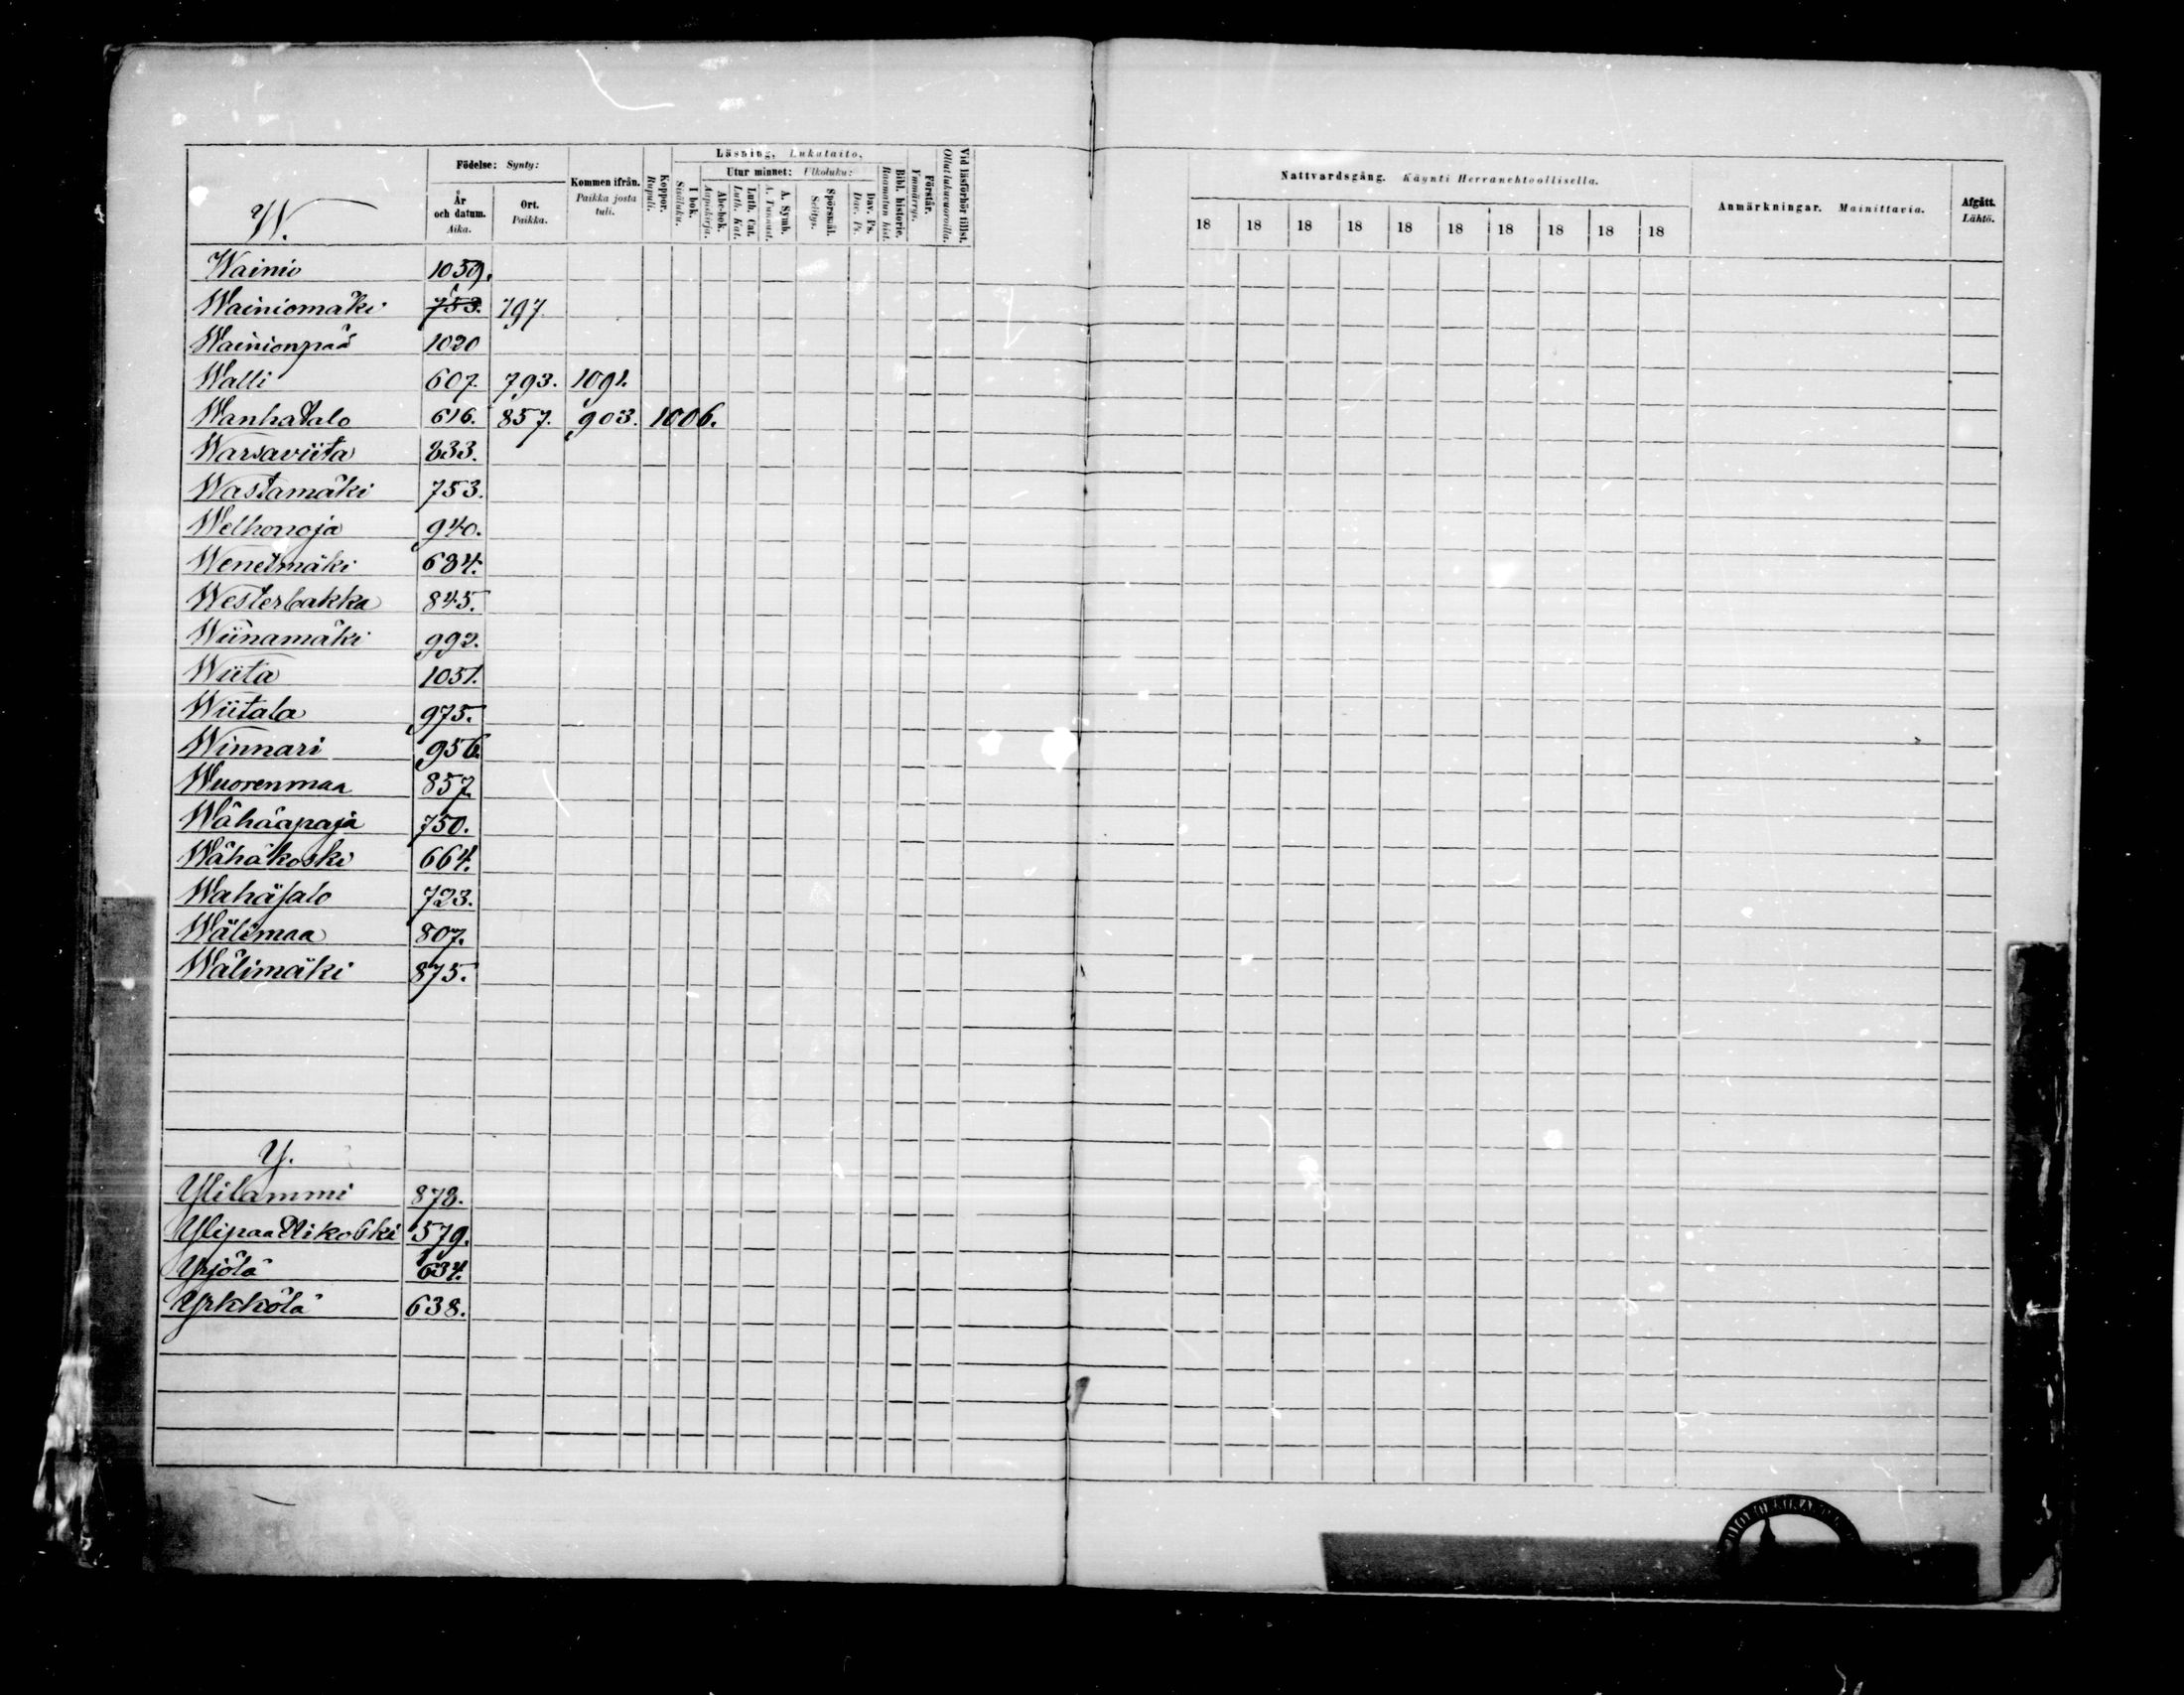 W.
Födelse: Synty:
År och datum. Aika.
Ort. Paikka.
Kommen ifrån. Paikka josta tuli.
Koppor. Rupuli.
Läsning, Lukutaito,
I bok. Sisäluku.
Utur minnet: Ulkoluku:
Abc-bok. Aapiskirja.
Luth. Cat. Luth. Kat.
A. Symb. A. Tunnust.
Spörsmål. Selitys.
Dav. Ps. Dav. Ps.
Bibl. historie. Raamatun hist.
Förstår. Ymmärrys.
Vid läsförhör tillst. Ollut lukuvuoroilla.
Nattvardsgång. Käynti Herranehtoollisella.
18 18 18 18 18 18 18 18 18 18
Anmärkningar. Mainittavia.
Afgått. Lähtö.
Wainio 1059.
Wainiomäki 753. 797
Wainionpää 1020
Walli 607. 793. 1091.
Wanhatalo 616. 857. 903. 1006.
Warsaviita 833.
Wastamäki 753.
Welhonoja 940.
Wenetmäki 634.
Westerbakka 845.
Wiinamäki 992.
Wiita 1051.
Wiitala 975.
Winnari 956.
Wuorenmaa 857.
Wähäapaja 750.
Wähäkoski 664.
Wahäsalo 723.
Wälimaa 807.
Wälimäki 875.
Y.
Ylilammi 878.
579.
Yrjölä 634.
Yrkkölä 638.